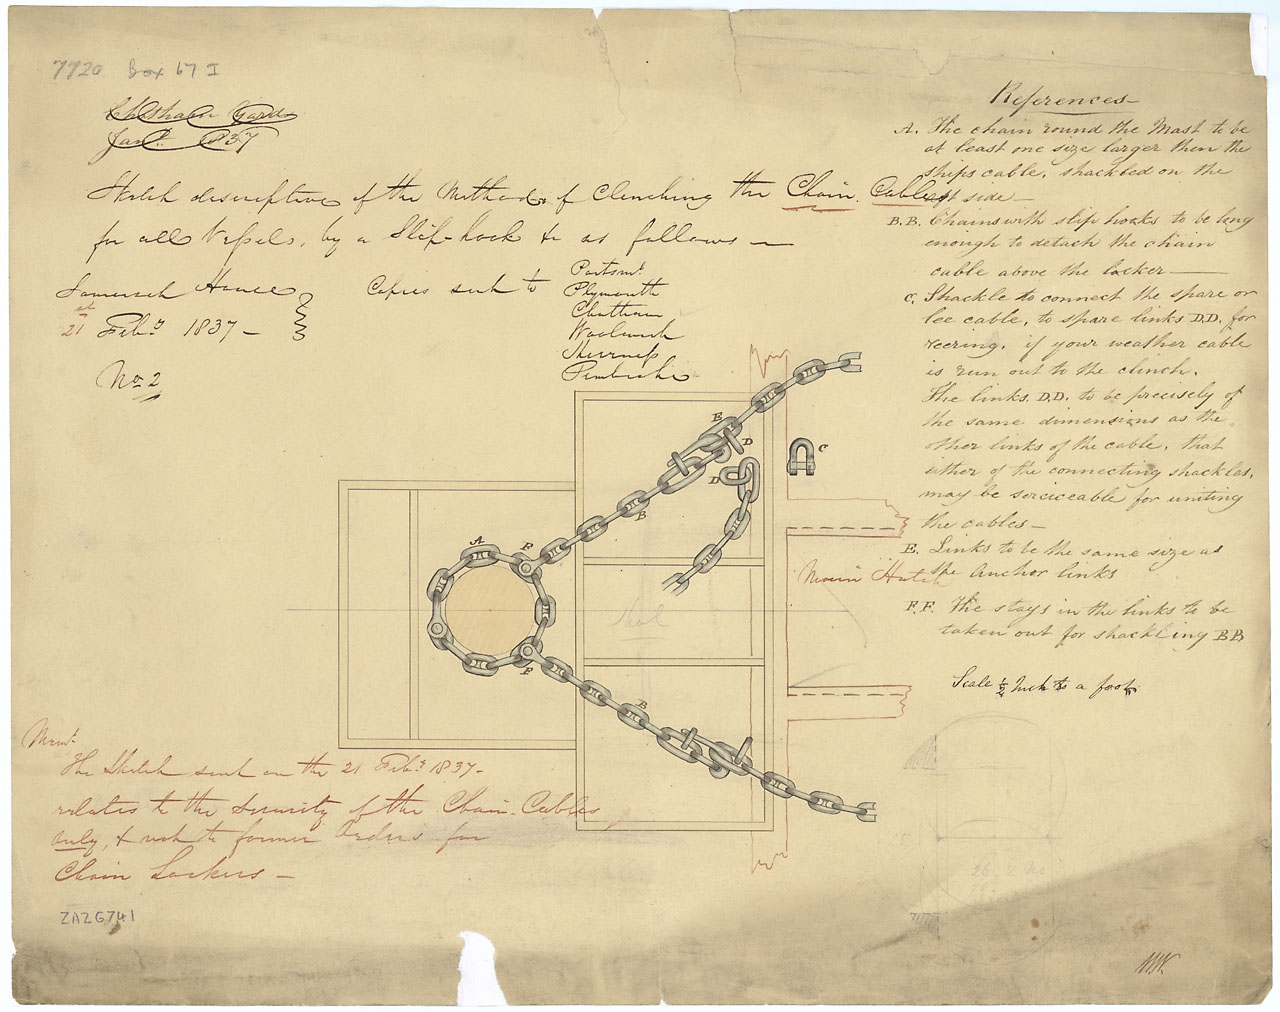 7720 Box 67 I
Chatham Yard
Jany. 1837
Sketch descriptive of the Method of Clenching the Chain Cables
for all Vessels, by a Slip-hook &c as follows —
Somerset House
21st Feby 1837 —
Copies sent to
Portsmo.
Plymouth
Chatham
Woolwich
Sheerness
Pembroke
No. 2
References —
A. The chain round the Mast to be
at least one size larger then the
ships cable, shackled on the
aft side —
B.B. Chains with slip hooks to be long
enough to detach the chain
cable above the locker —
C. Shackle to connect the spare or
lee cable, to spare links D.D. for
veering, if your weather cable
is run out to the clinch.
The links D.D. to be precisely of
the same dimensions as the
other links of the cable, that
either of the connecting shackles,
may be serviceable for uniting
the cables —
E. Links to be the same size as
the Anchor links
F.F. The stays in the links to be
taken out for shackling BB
Scale ½ Inch to a foot
E
D
D
C
B
A
F
F
B
Main Hatch
Memo.
The Sketch sent on the 21 Feby. 1837 —
relates to the security of the Chain-Cables
only, & not to former Orders for
Chain Lockers —
ZAZ6741